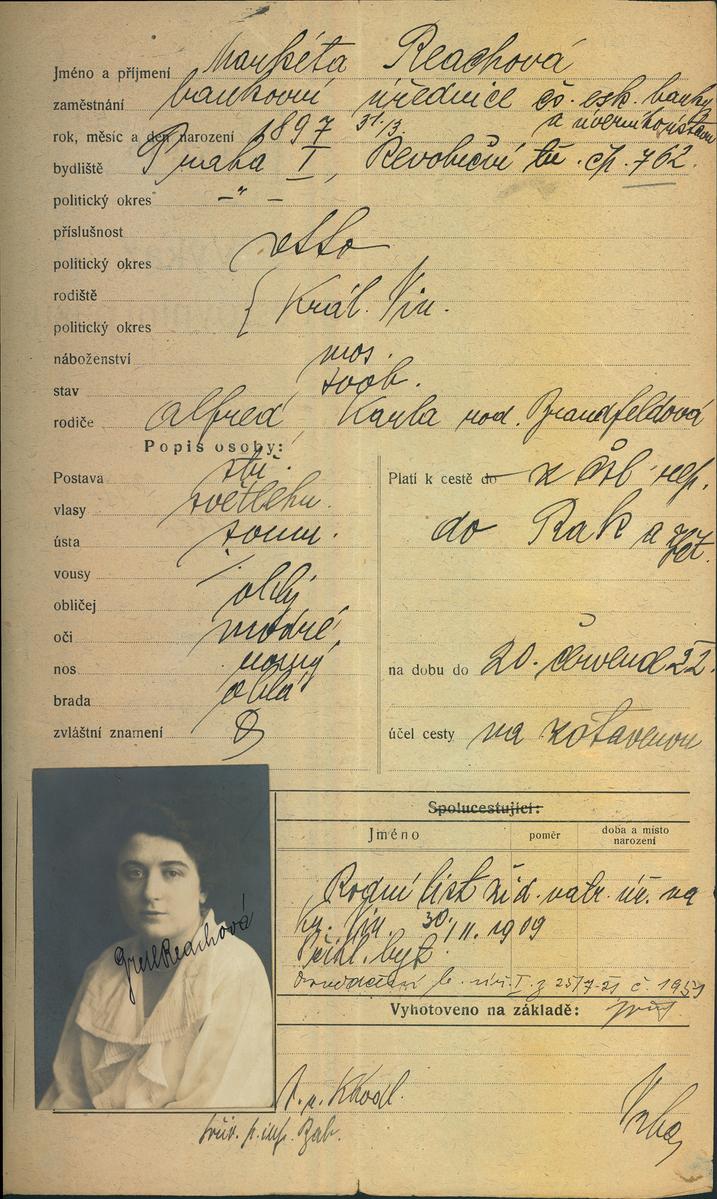 Jméno a příjmení Markéta Reachová
zaměstnání bankovní úřednice čs. esk. banky
a úvěrního ústavu
rok, měsíc a den narození 1897 31/3.
bydliště Praha I, Revoluční tř. čp. 762.
politický okres —"—
příslušnost
politický okres detto
rodiště
politický okres { Král. Vin.
náboženství mos.
stav svob.
rodiče Alfred Karla roz. Brandfeldová
Popis osoby:
Postava stř.
vlasy světlehn.
ústa soum.
vousy ·/·
obličej oblý
oči modré
nos rovný
brada oblá
zvláštní znamení
Platí k cestě do z čsl. rep.
do Rak a zpět.
na dobu do 20. červend 22.
účel cesty na zotavenou
Spolucestující:
Jméno poměr doba a místo
narození
Rodní list žid. matr. úř. na
Kr. Vin. 30/11. 1909
Přihl. byt.
z 25/7-21 č. 1951
Vyhotoveno na základě:
Gretl Reachová